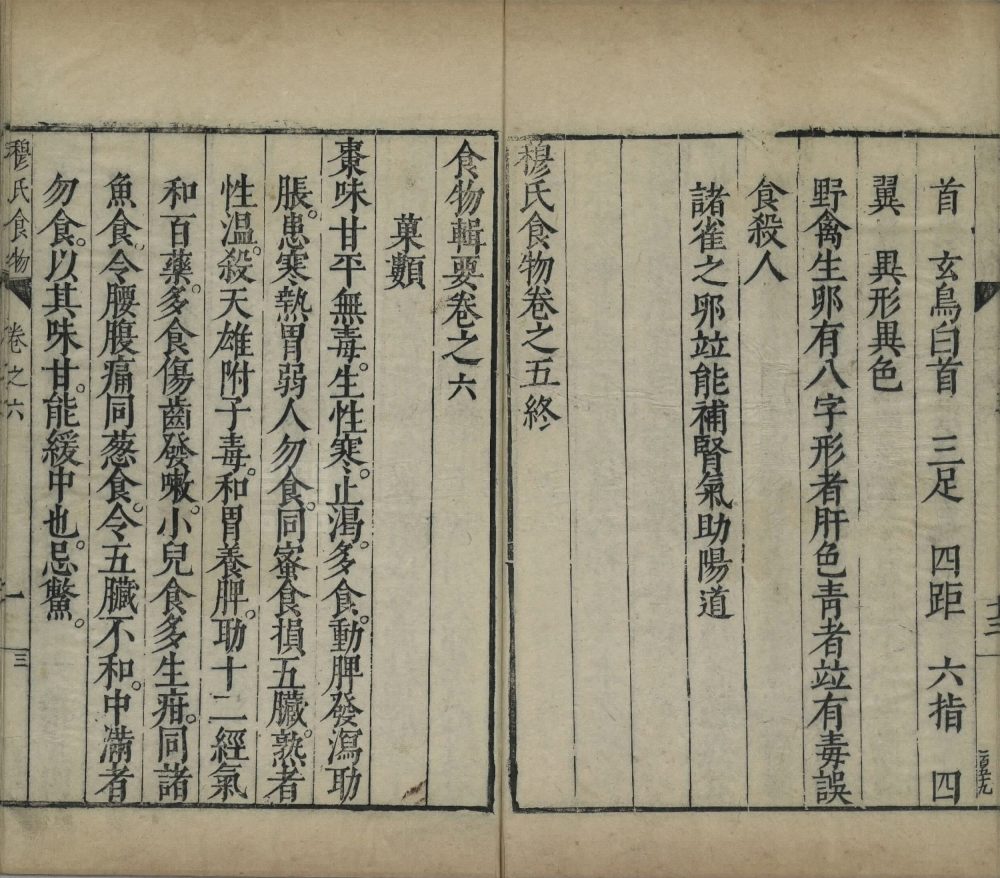 首　玄鳥白首　三足　四距　六指　四
翼　異形異色
野禽生卵有八字形者肝色青者竝有毒誤
食殺人
諸雀之卵竝能補腎氣助陽道
穆氏食物卷之五終
食物輯要卷之六
菓類
棗味甘平無毒。生性寒。止渴。多食。動脾發瀉助
脹。患寒熱胃弱人勿食。同蜜食損五臟。熟者
性溫。殺天雄附子毒。和胃養脾。助十二經氣
和百藥。多食傷齒發嗽。小兒食多生疳。同諸
魚食。令腰腹痛同葱食。令五臟不和。中滿者
勿食。以其味甘。能緩中也。忌鱉。
穆氏食物　卷之六　一　三